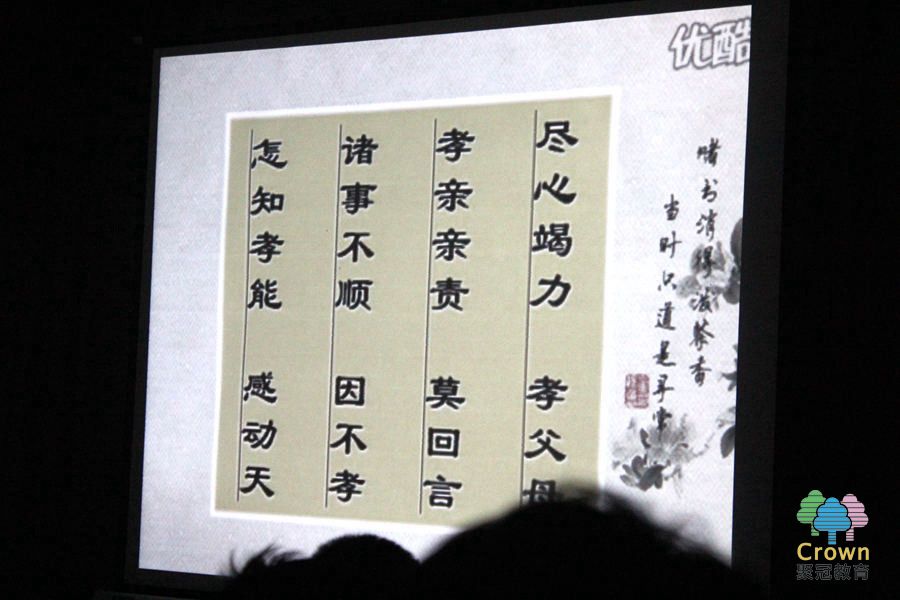 优酷
赌书消得泼茶香
当时只道是寻常
尽心竭力 孝父母
孝亲亲责 莫回言
诸事不顺 因不孝
怎知孝能 感动天
Crown
聚冠教育